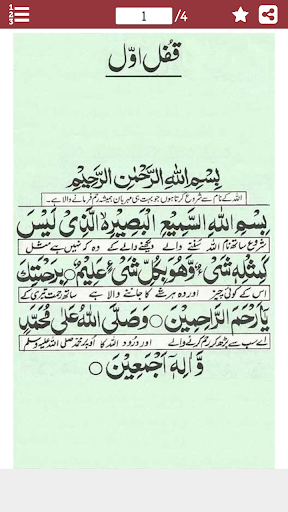 1 /4
قفل اوّل
بِسْمِ اللهِ الرَّحْمٰنِ الرَّحِيْمِ
اللہ کے نام سے شروع کرتا ہوں جو بہت ہی مہربان ہمیشہ رحم فرمانے والا ہے۔
بِسْمِ اللهِ السَّمِيْعِ الْبَصِيْرِ الَّذِىْ لَيْسَ
شروع ساتھ نام اللہ سننے والے دیکھنے والے کے وہ کہ نہیں ہے مثل
كَمِثْلِهٖ شَىْءٌ وَّهُوَ بِكُلِّ شَىْءٍ عَلِيْمٌ ○ بِرَحْمَتِكَ
اس کے کوئی چیز اور وہ ہر شے کا جاننے والا ہے ساتھ رحمت تیری کے
يَا اَرْحَمَ الرَّاحِمِيْنَ ○ وَصَلَّى اللهُ عَلٰى مُحَمَّدٍ
اے سب سے بڑھ کر رحم کرنے والے اور درود اللہ کا اوپر محمد صلی اللہ علیہ وسلم
وَّاٰلِهٖٓ اَجْمَعِيْنَ ○